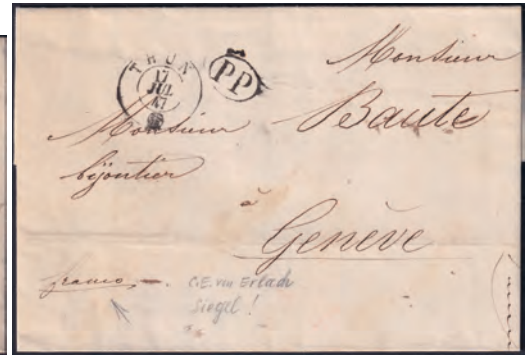 THUN
17
JUL
47
PP
Monsieur
Baute
Monsieur
bijoutier
à
Genève
franco
C.E. von Erlach
Siegel !